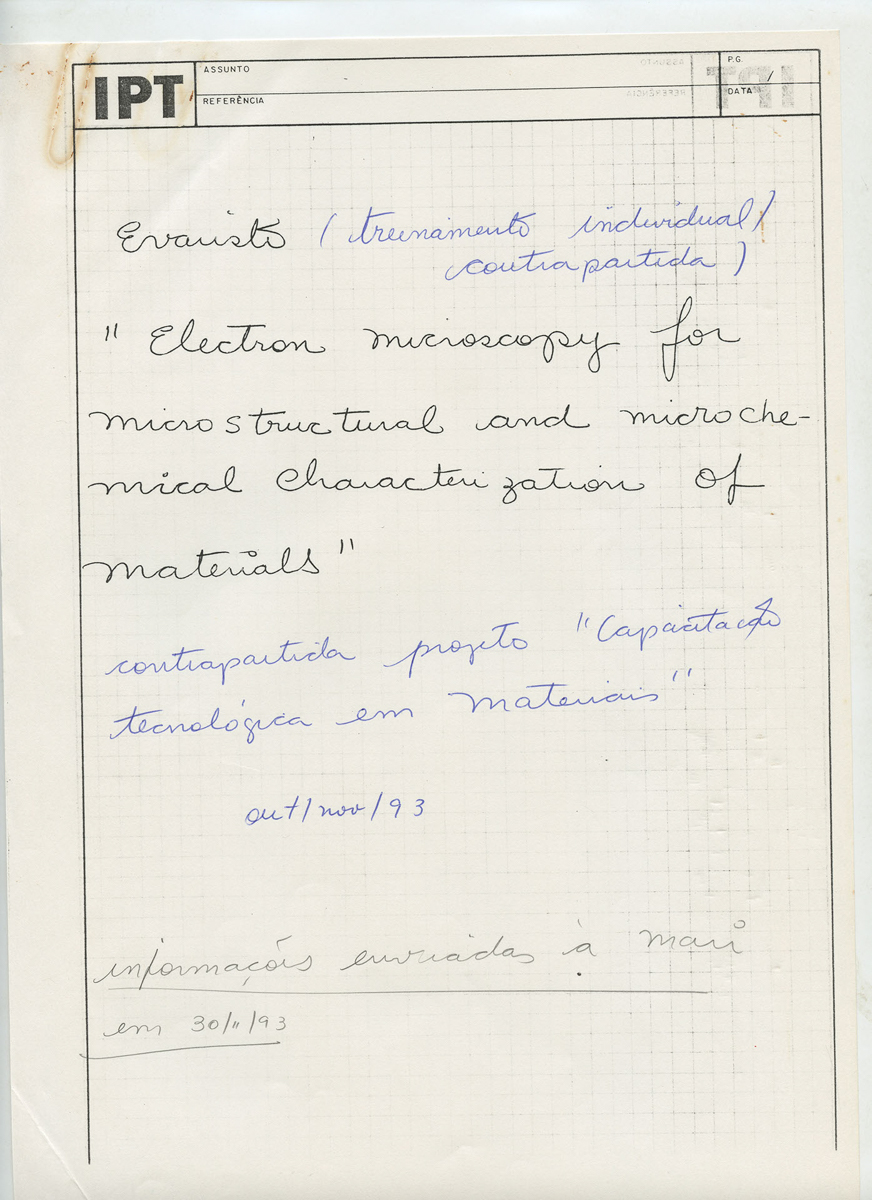 IPT
ASSUNTO
REFERÊNCIA
P.G.
DATA /
Evaristo (treinamento individual/
contrapartida)
" Electron microscopy for
microstructural and microche-
mical characterization of
materials"
contrapartida projeto "Capacitação
tecnológica em Materiais"
out/nov/93
informações enviadas à Mari
em 30/11/93